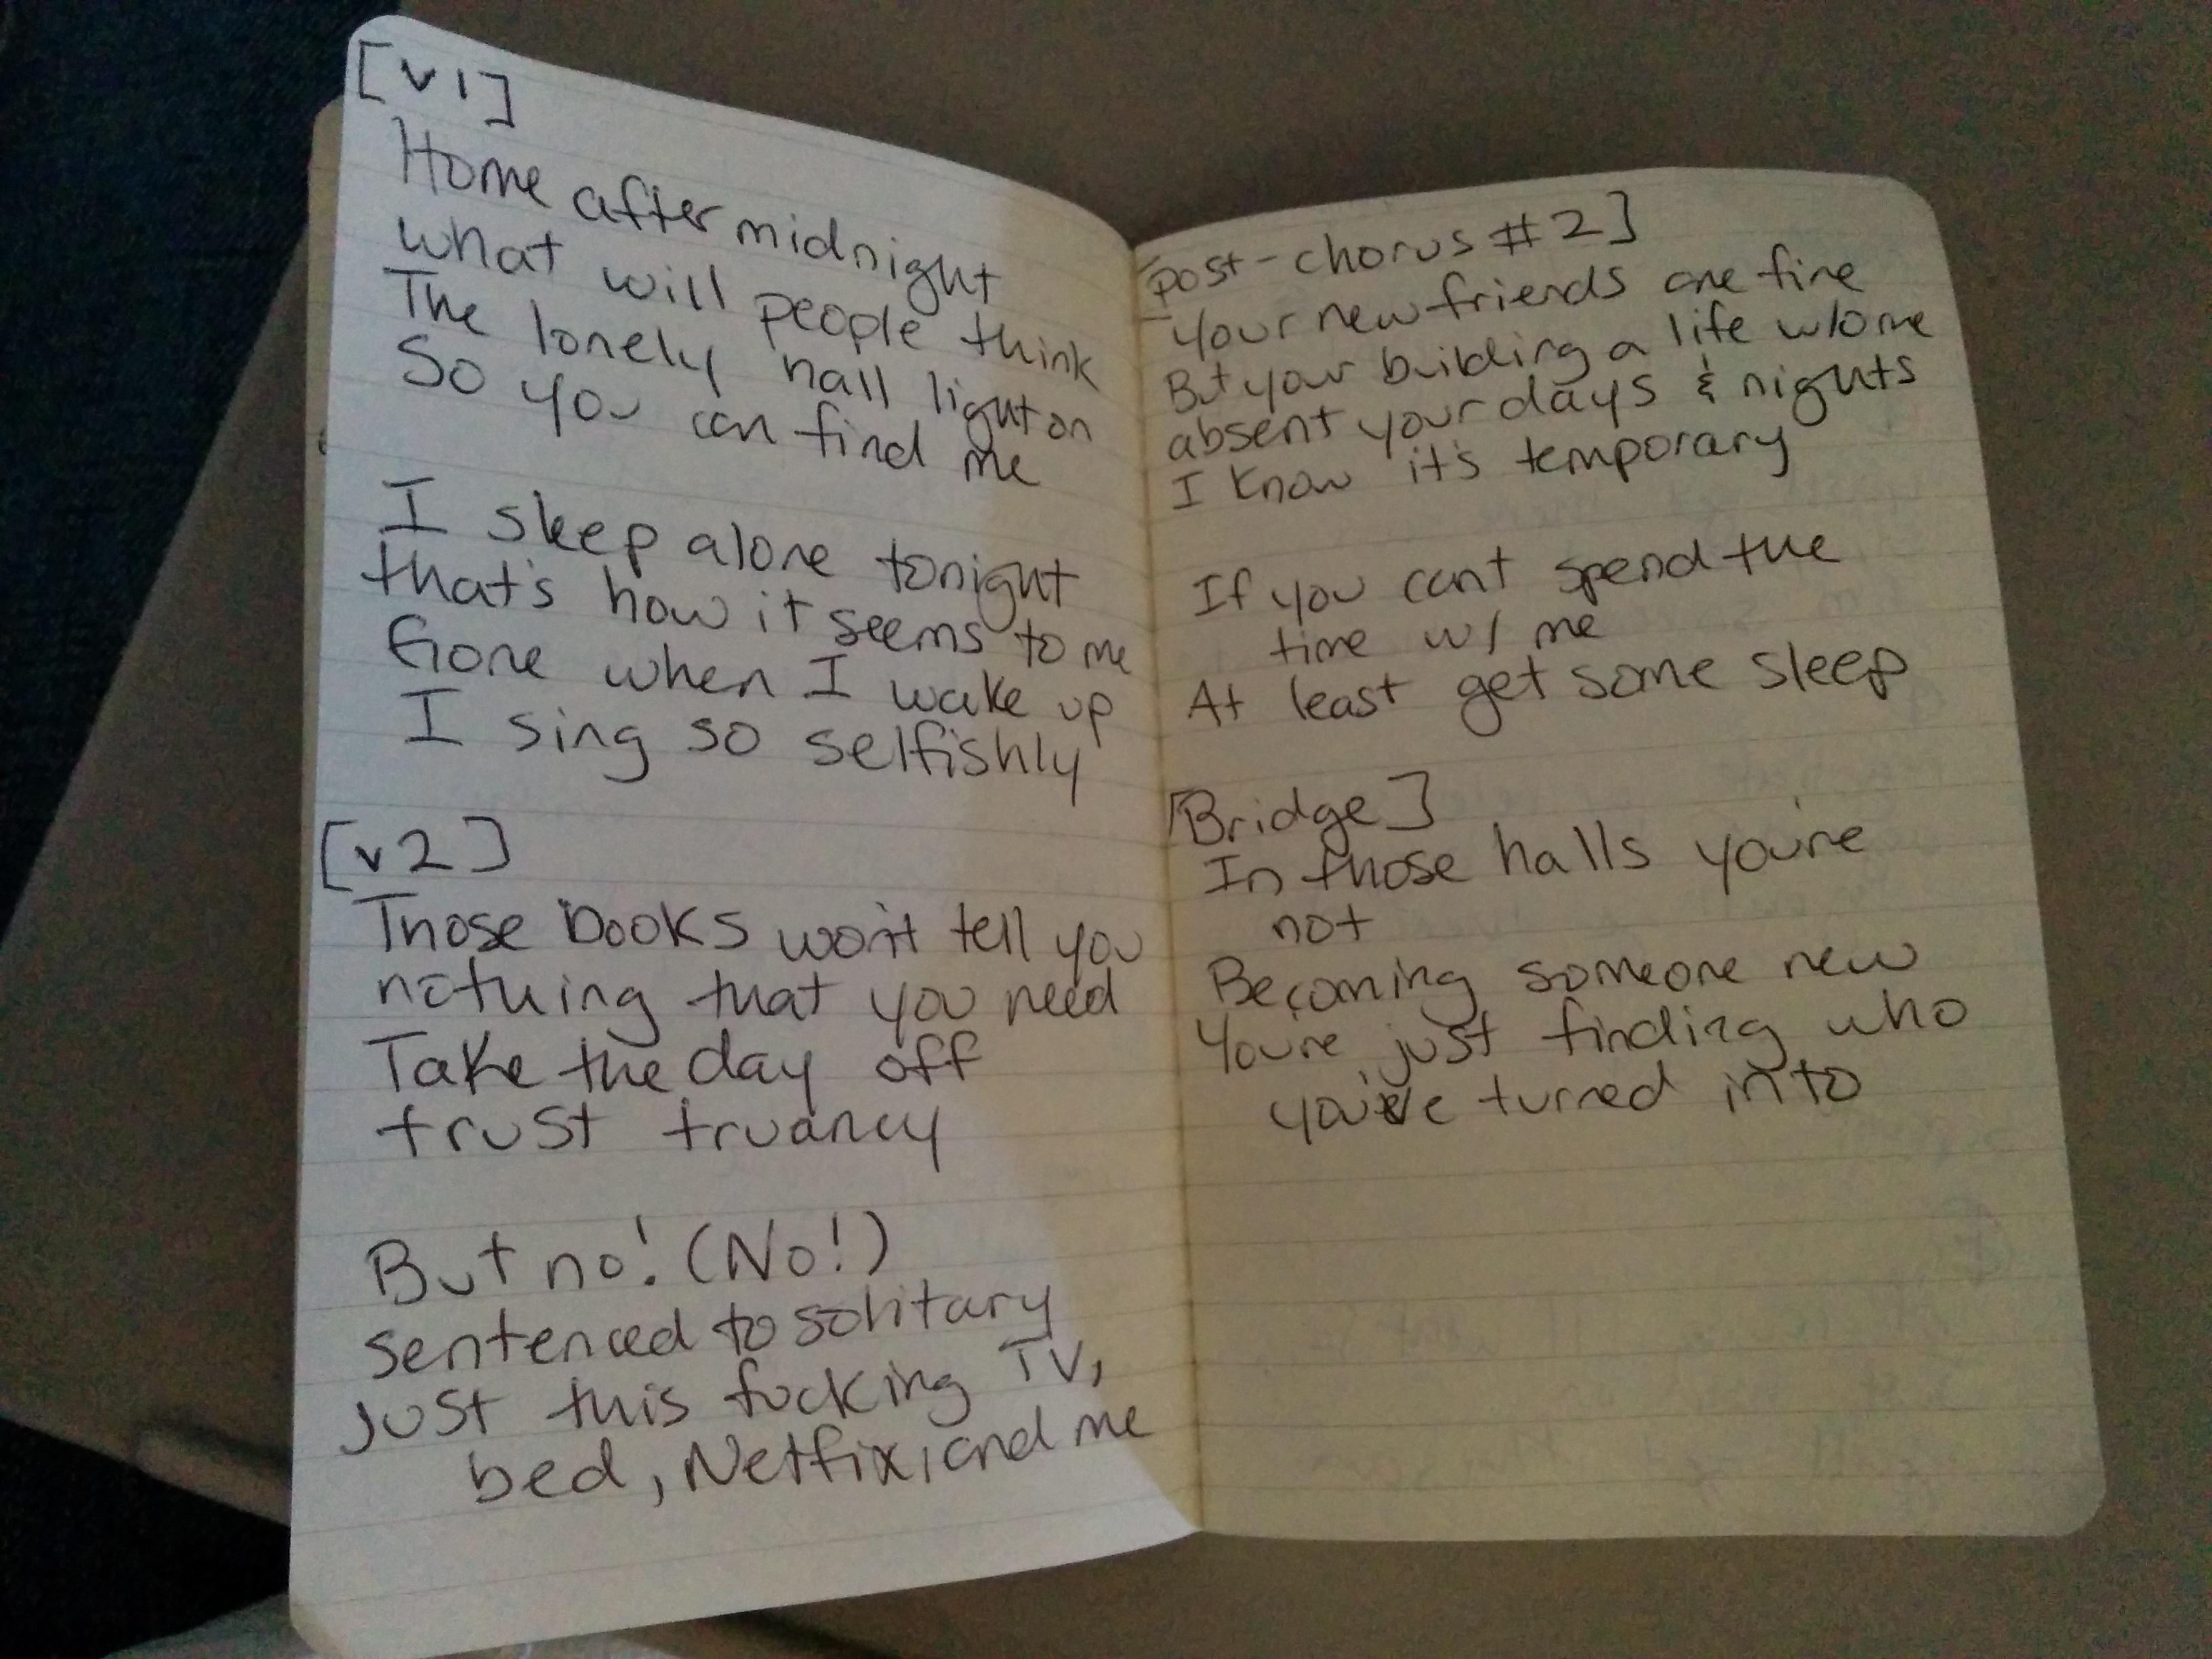 [v1]
Home after midnight
what will people think
The lonely hall light on
So you can find me
I sleep alone tonight
that's how it seems to me
Gone when I wake up
I sing so selfishly
[v2]
Those books won't tell you
nothing that you need
Take the day off
trust truancy
But no! (No!)
sentenced to solitary
just this fucking TV,
bed, Netflix, and me
[post-chorus #2]
Your new friends are fine
But your building a life w/o me
absent your days & nights
I know it's temporary
If you can't spend the
time w/ me
At least get some sleep
[Bridge]
In those halls you're
not
Becoming someone new
You're just finding who
you've turned into